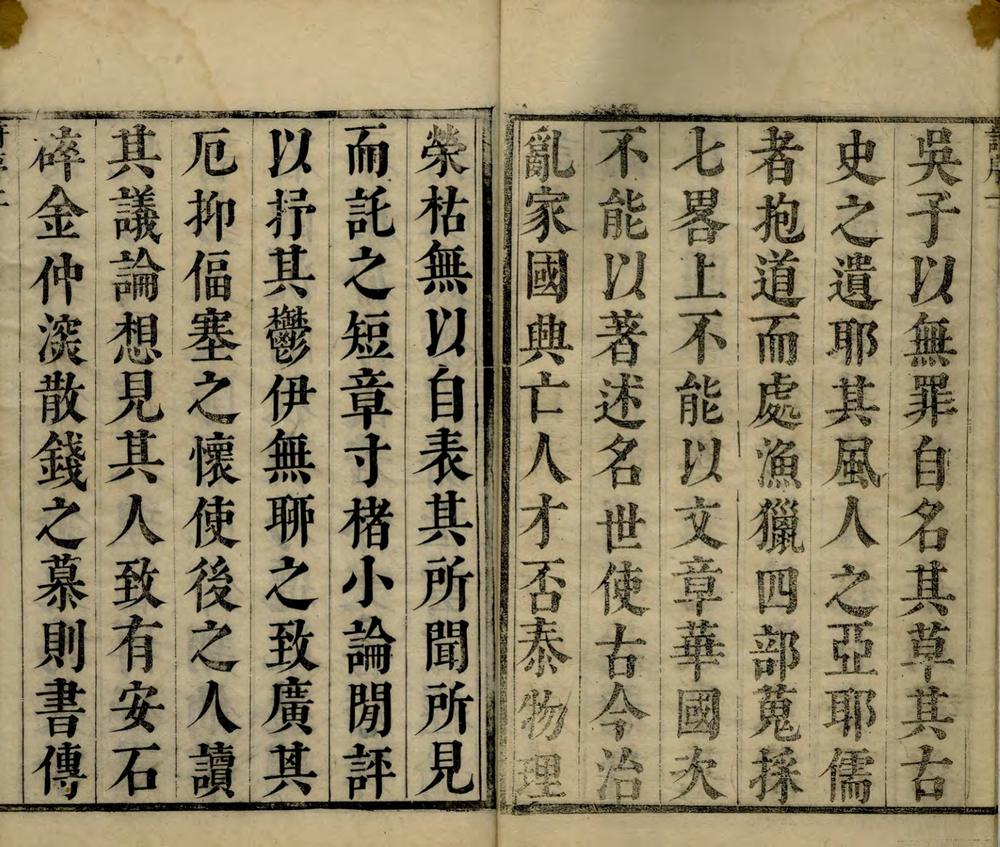 吳子以無罪自名其草其古
史之遺耶其風人之亞耶儒
者抱道而處漁獵四部蒐採
七畧上不能以文章華國次
不能以著述名世使古今治
亂家國興亡人才否泰物理
榮枯無以自表其所聞所見
而託之短章寸楮小論閒評
以抒其鬱伊無聊之致廣其
厄抑偪塞之懷使後之人讀
其議論想見其人致有安石
碎金仲深散錢之慕則書傳